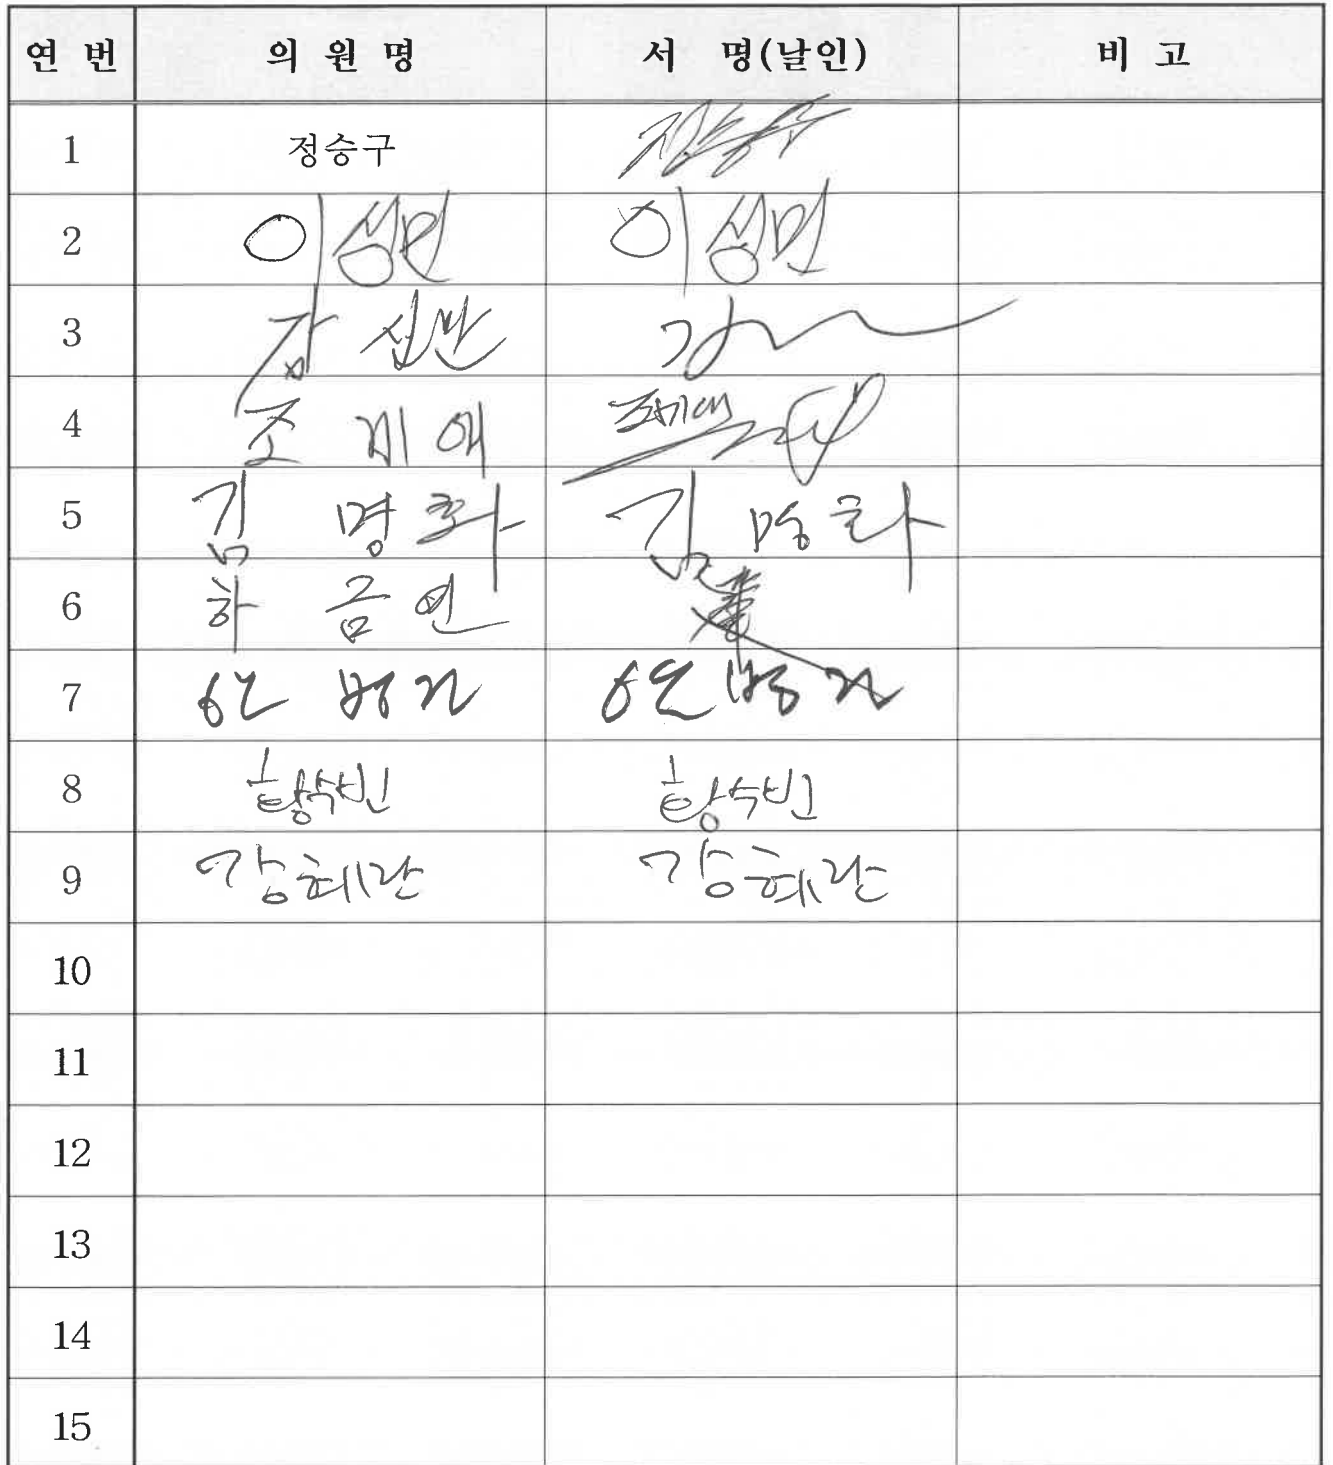 연 번 의 원 명 서 명(날인) 비 고
1 정승구 정승구
2 이성민 이성민
3
4 조미애
5 김명화 김명화
6 하금연
7
8 황수빈 황수빈
9 강혜란 강혜란
10
11
12
13
14
15